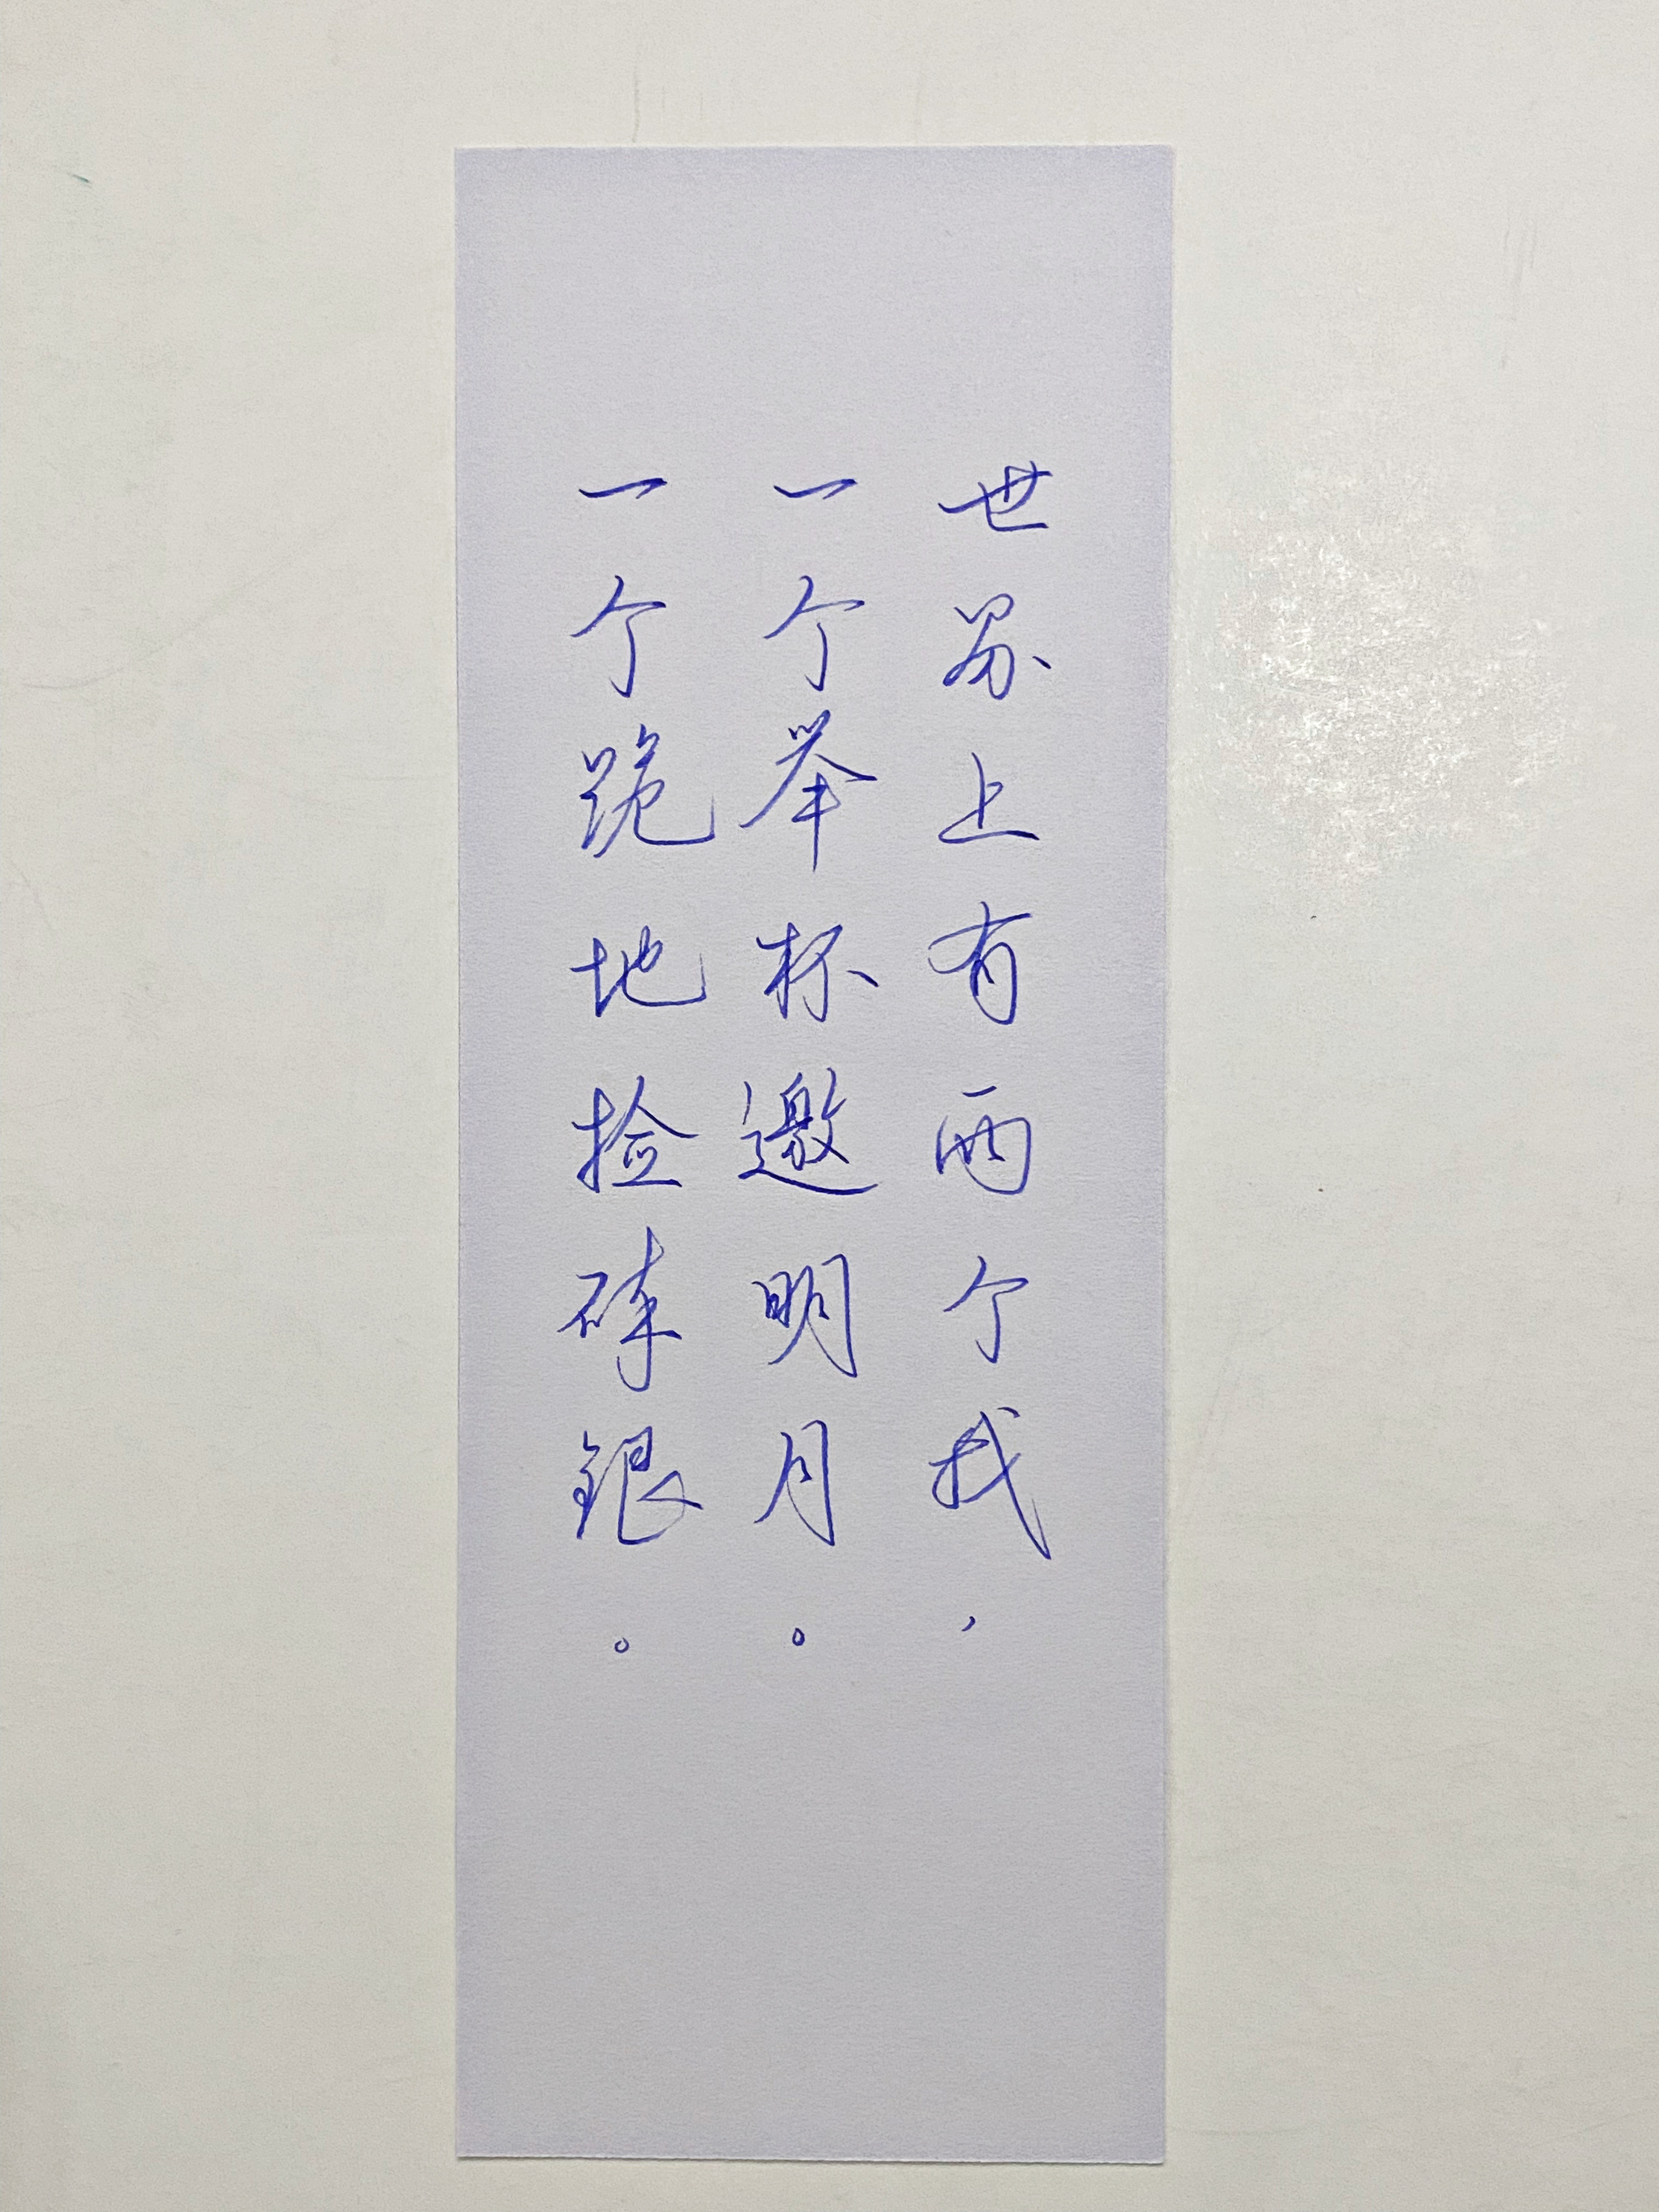 世界上有两个我，
一个举杯邀明月。
一个跪地捡碎银。